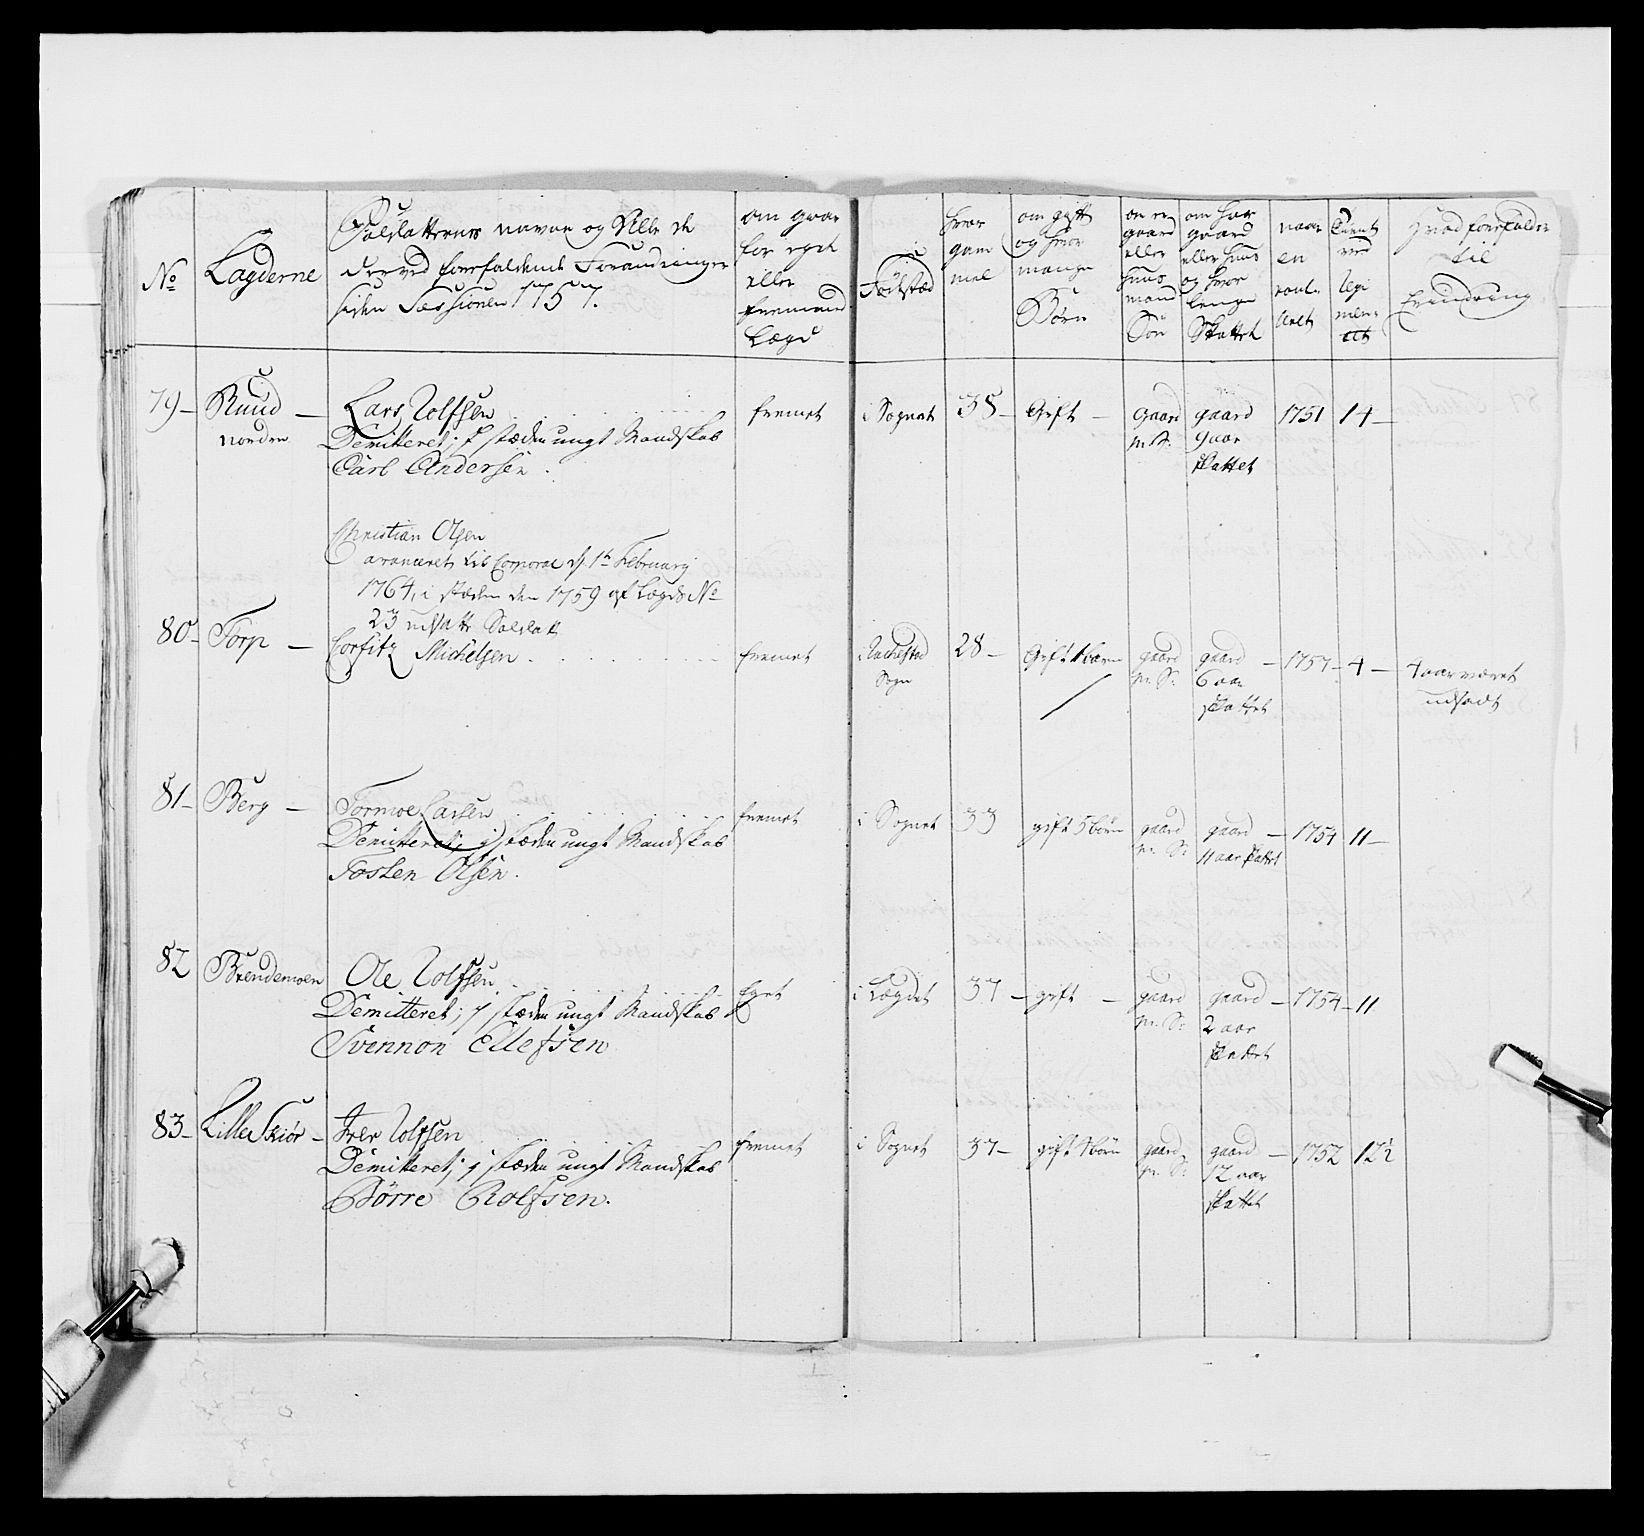 No
Lagderne
Soldatternes navne og Alle de
derved forefaldende Forandringer
siden Sessionen 1757.
om gaar
for eget
eller
fremmed
Lægd
Födestæd
hvor
gam
mel
om gift
og hvor
mange
Börn
om er
gaard
eller
huus
mand
Sön
om har
gaard
eller huus
og hvor
lenge
Skattet
naar
en
roule
Tient
ved
Regi
men-
tet
Hvad forefalder
til
Erindring
79- Ruud —
nordre
Lars Rolfsen
Demitteret; i stæden ungt Mandskab
Carl Andersen.
fremet
i Sognet
38-
Gift -
Gaard
m. S:
gaard
9 aar
skattet
1751
14-
Christian Olsen
avanceret til Corporal d. 1te February
1764, i stæden den 1759 af Lægds No
23 udsatte Soldatt
80- Torp —
Corfitz Michelsen
fremet
i Rachestad
Sogn
28-
Gift 1 barn
gaard
m. S:
gaard
6 aar
skattet
- 1757 - 4 -
4 aar været
udsadt
81- Berg —
Tormoe Larsen
Demitteret; i stæden ungt Mandskab
Tosten Olsen.
fremet
i Sognet
33
gift 5 börn
gaard
m. S:
gaard
11 aar skattet
- 1754
11-
82 Brendemoen
Ole Rolfsen
Demitteret; i stæden ungt Mandskab
Svennon Ellefsen
Eget
i Lægdet
37-
gift -
gaard
m. S:
gaard
2 aar
skattet
- 1754 - 11
83- Lille Skiör -
Iver Rolfsen
Demitteret; i stæden ungt Mandskab
Börre Rolfsen.
fremet
i Sognet
37-
gift 4 börn
gaard
m. S:
gaard
12 aar
skattet
- 1752
12½